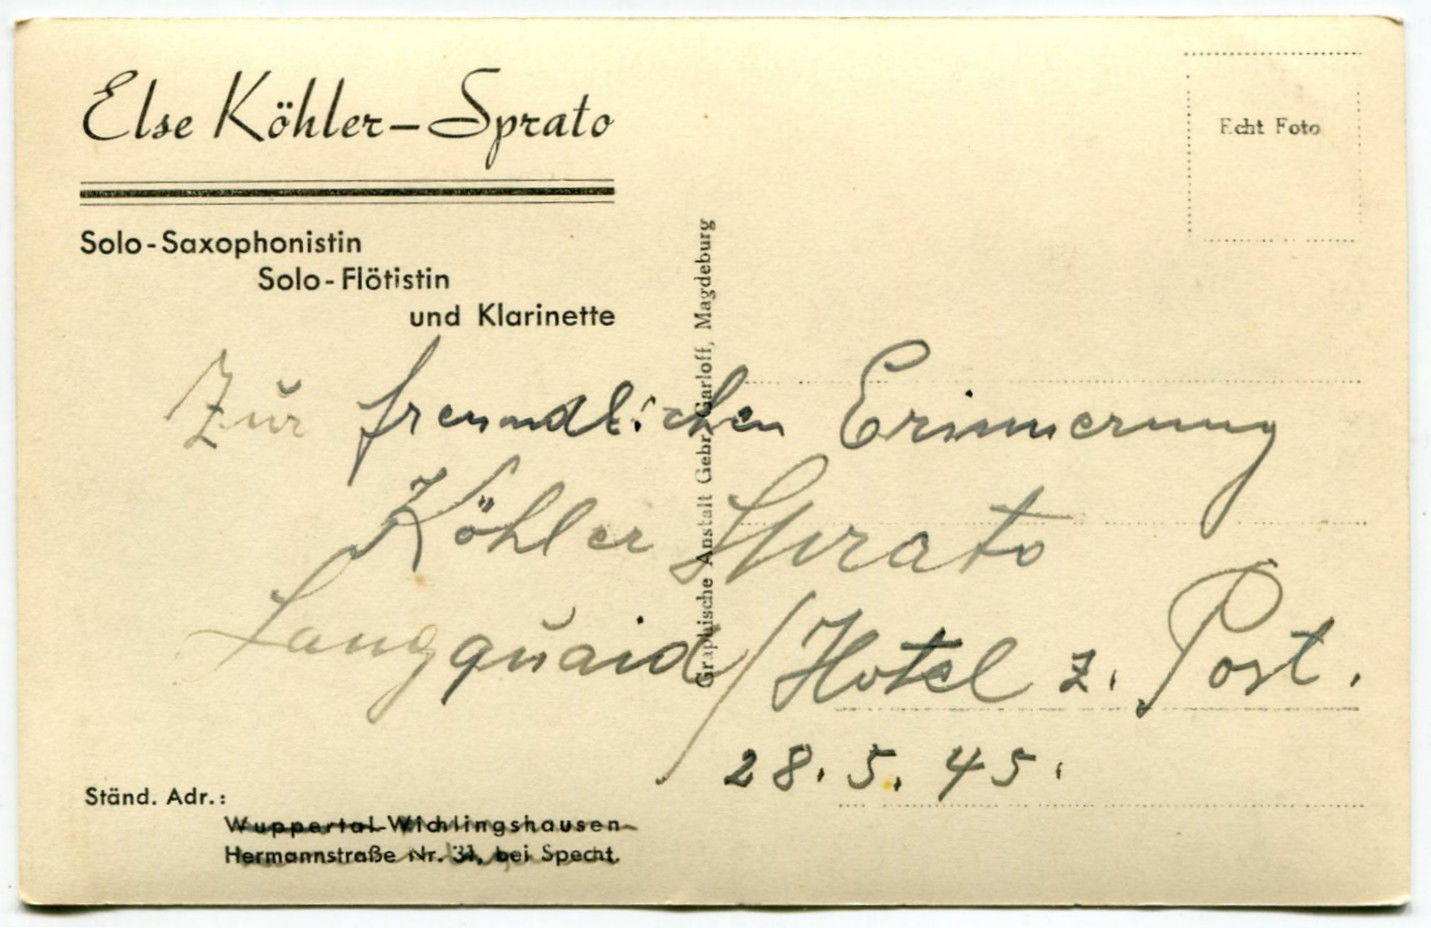 Else Köhler-Sprato
Solo-Saxophonistin
Solo-Flötistin
und Klarinette
Echt Foto
Graphische Anstalt Gebr. Garloff, Magdeburg
Zur freundlichen Erinnerung
Köhler Sprato
Langquaid / Hotel z. Post.
28. 5. 45.
Ständ. Adr.:
Wuppertal-Wichlingshausen
Hermannstraße Nr. 31, bei Specht.